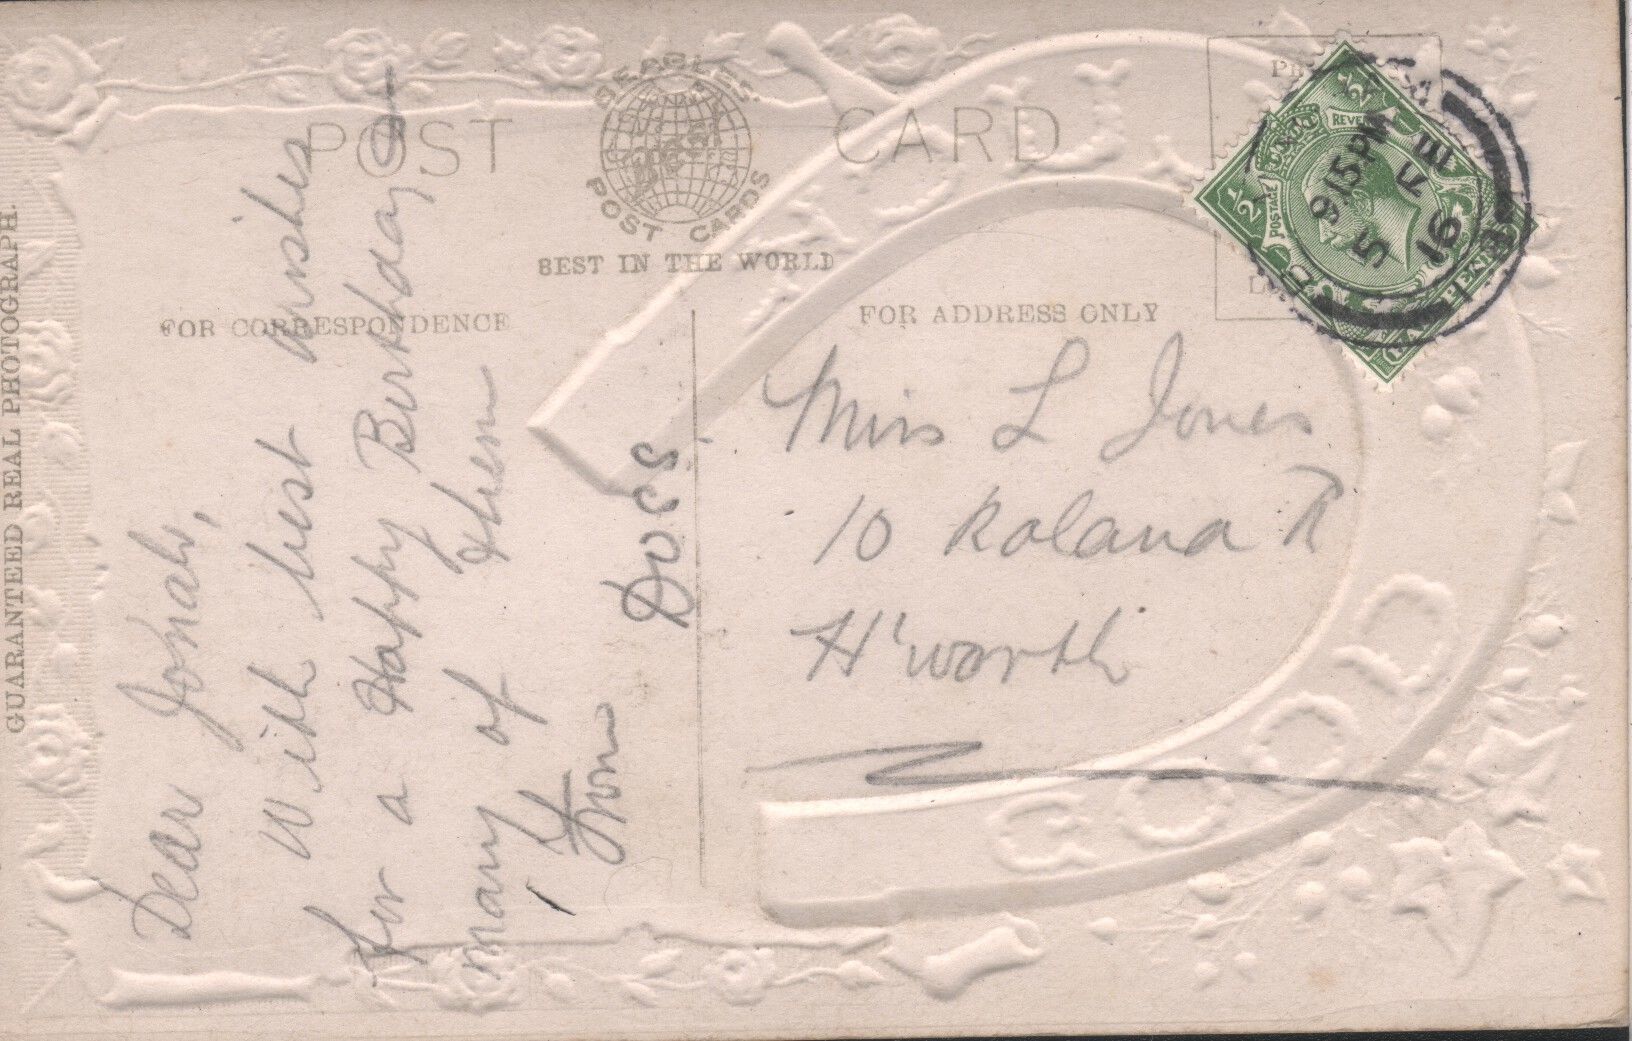 POST CARD
BEAGLES'
POST CARDS
BEST IN THE WORLD
FOR CORRESPONDENCE
FOR ADDRESS ONLY
GUARANTEED REAL PHOTOGRAPH.
Dear Jonah,
With best wishes
for a Happy Birthday &
many of them
from
Doss.
Miss L Jones
10 Roland R
H'worth
POSTAGE
REVENUE
9.15 PM
5 FE
16
GOOD